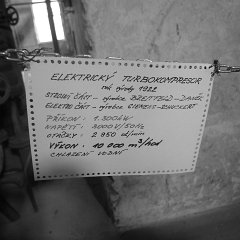 ELEKTRICKÝ TURBOKOMPRESOR
rok výroby 1922
STROJNÍ ČÁST - výrobce BREITFELD - DANĚK
ELEKTRO ČÁST - výrobce SIEMENS - SCHUCKERT
PŘÍKON: 1.300 kW
NAPĚTÍ: 3000 V/50Hz
OTÁČKY: 2 950 ot/min
VÝKON: 10 000 m³/hod
CHLAZENÍ VODNÍ